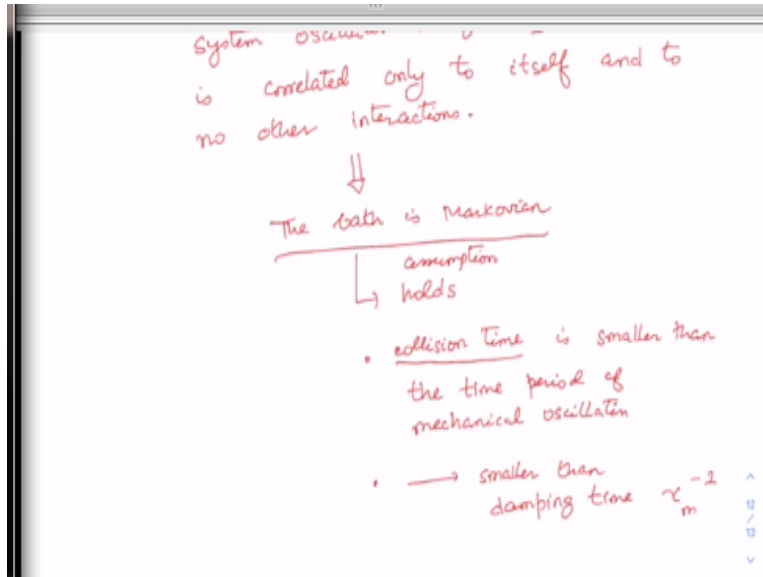 System
is correlated only to itself and to
no other interactions.
⇓
The bath is Markovian
assumption
↳ holds
• collision Time is smaller than
the time period of
mechanical oscillatin
• → smaller than
damping time γm⁻¹
12
/
13